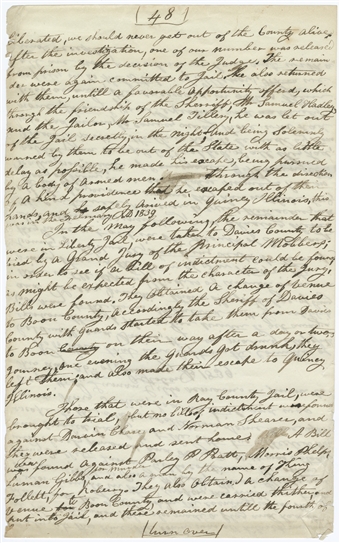 (48)
liberated, we should never get out of the County alive
After the investigation, one of our number was released
from prison by the decision of the Judge. The remain
der were again committed to Jail, he also returned
with them, untill a favorable opportunity offered, which
through the friendship of the Sherriff, Mr Samuel Hadley
and the Jailor, Mr Samuel Tilley, he was let out
of the Jail secretly, in the night, and being solemnly
warned by them to be out of the State with as little
delay as possible, he made his escape, being pursued
by a body of armed men, through the direction
of a kind providence that he escaped out of their
hands, and safely arrived in Quincy Illinois, this
was in February AD 1839.
In the May following, the remainder that
were in Liberty Jail, were taken to Davies County to be
tried by a Grand Jury of the Principal Mobbers;
in order to see if a bill of indictment could be found
as might be expected from the character of the Jury,
Bills were found, They obtained A change of venue
to Boon County, Accordingly the Sheriff of Davies
County with guards started to take them from Davies
to Boon County on their way after a day or two's
journey, one evening the guards got drunk, they
left them, and also made their escape to Quincy
Illinois.
Those that were in Ray County Jail, were
brought to trial, but no bills of indictment was found
against Darwin Chase, and Norman Shearer, and
they were released and sent home; A Bill
was found Against Parley P Pratt, Morris Phelps,
Luman Gibbs, and also a man by the name of King
Follett, for Robery. They also obtained A change of
venue to Boon County and were carried thither, and
put into Jail, and there remained untill the fourth of
(turn over)